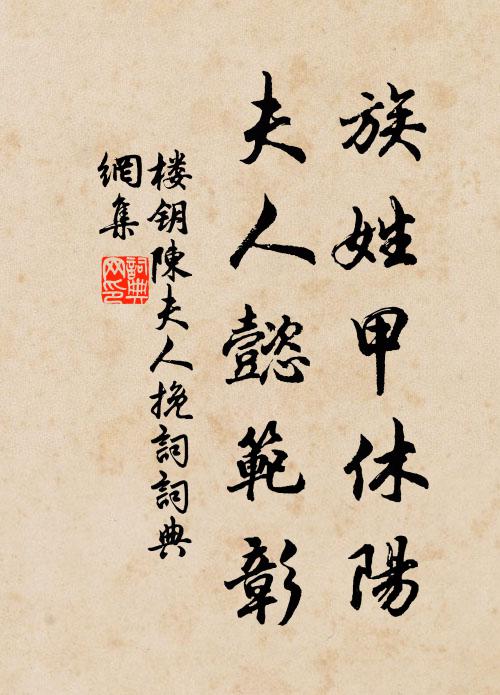 族姓甲休陽
夫人懿範彰
楼钥陳夫人挽詞詞典
網集
詞典
网印